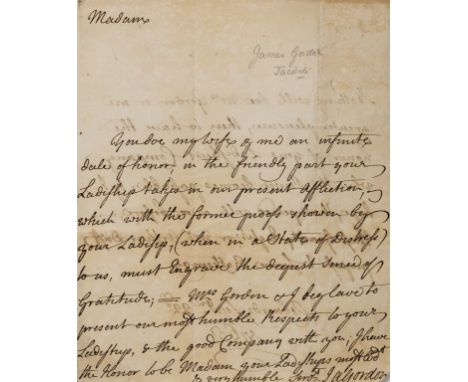 Madam
James Gordon
Jacobite
You doe my Wife & me an infinite
dale of honor, in the friendly part your
Ladiship takes in our present affliction,
which with the former proofs shown by
your Ladisp, (when in a State of Distress)
to us, must Engrave the deepest sence of
Gratitude; — Mrs Gordon & I beg lave to
present our most humble Respects to your
Ladiship, & the good Company with you; I have
the Honor to be Madam your Ladiships most Obdt
& very humble Servt Ja Gordon